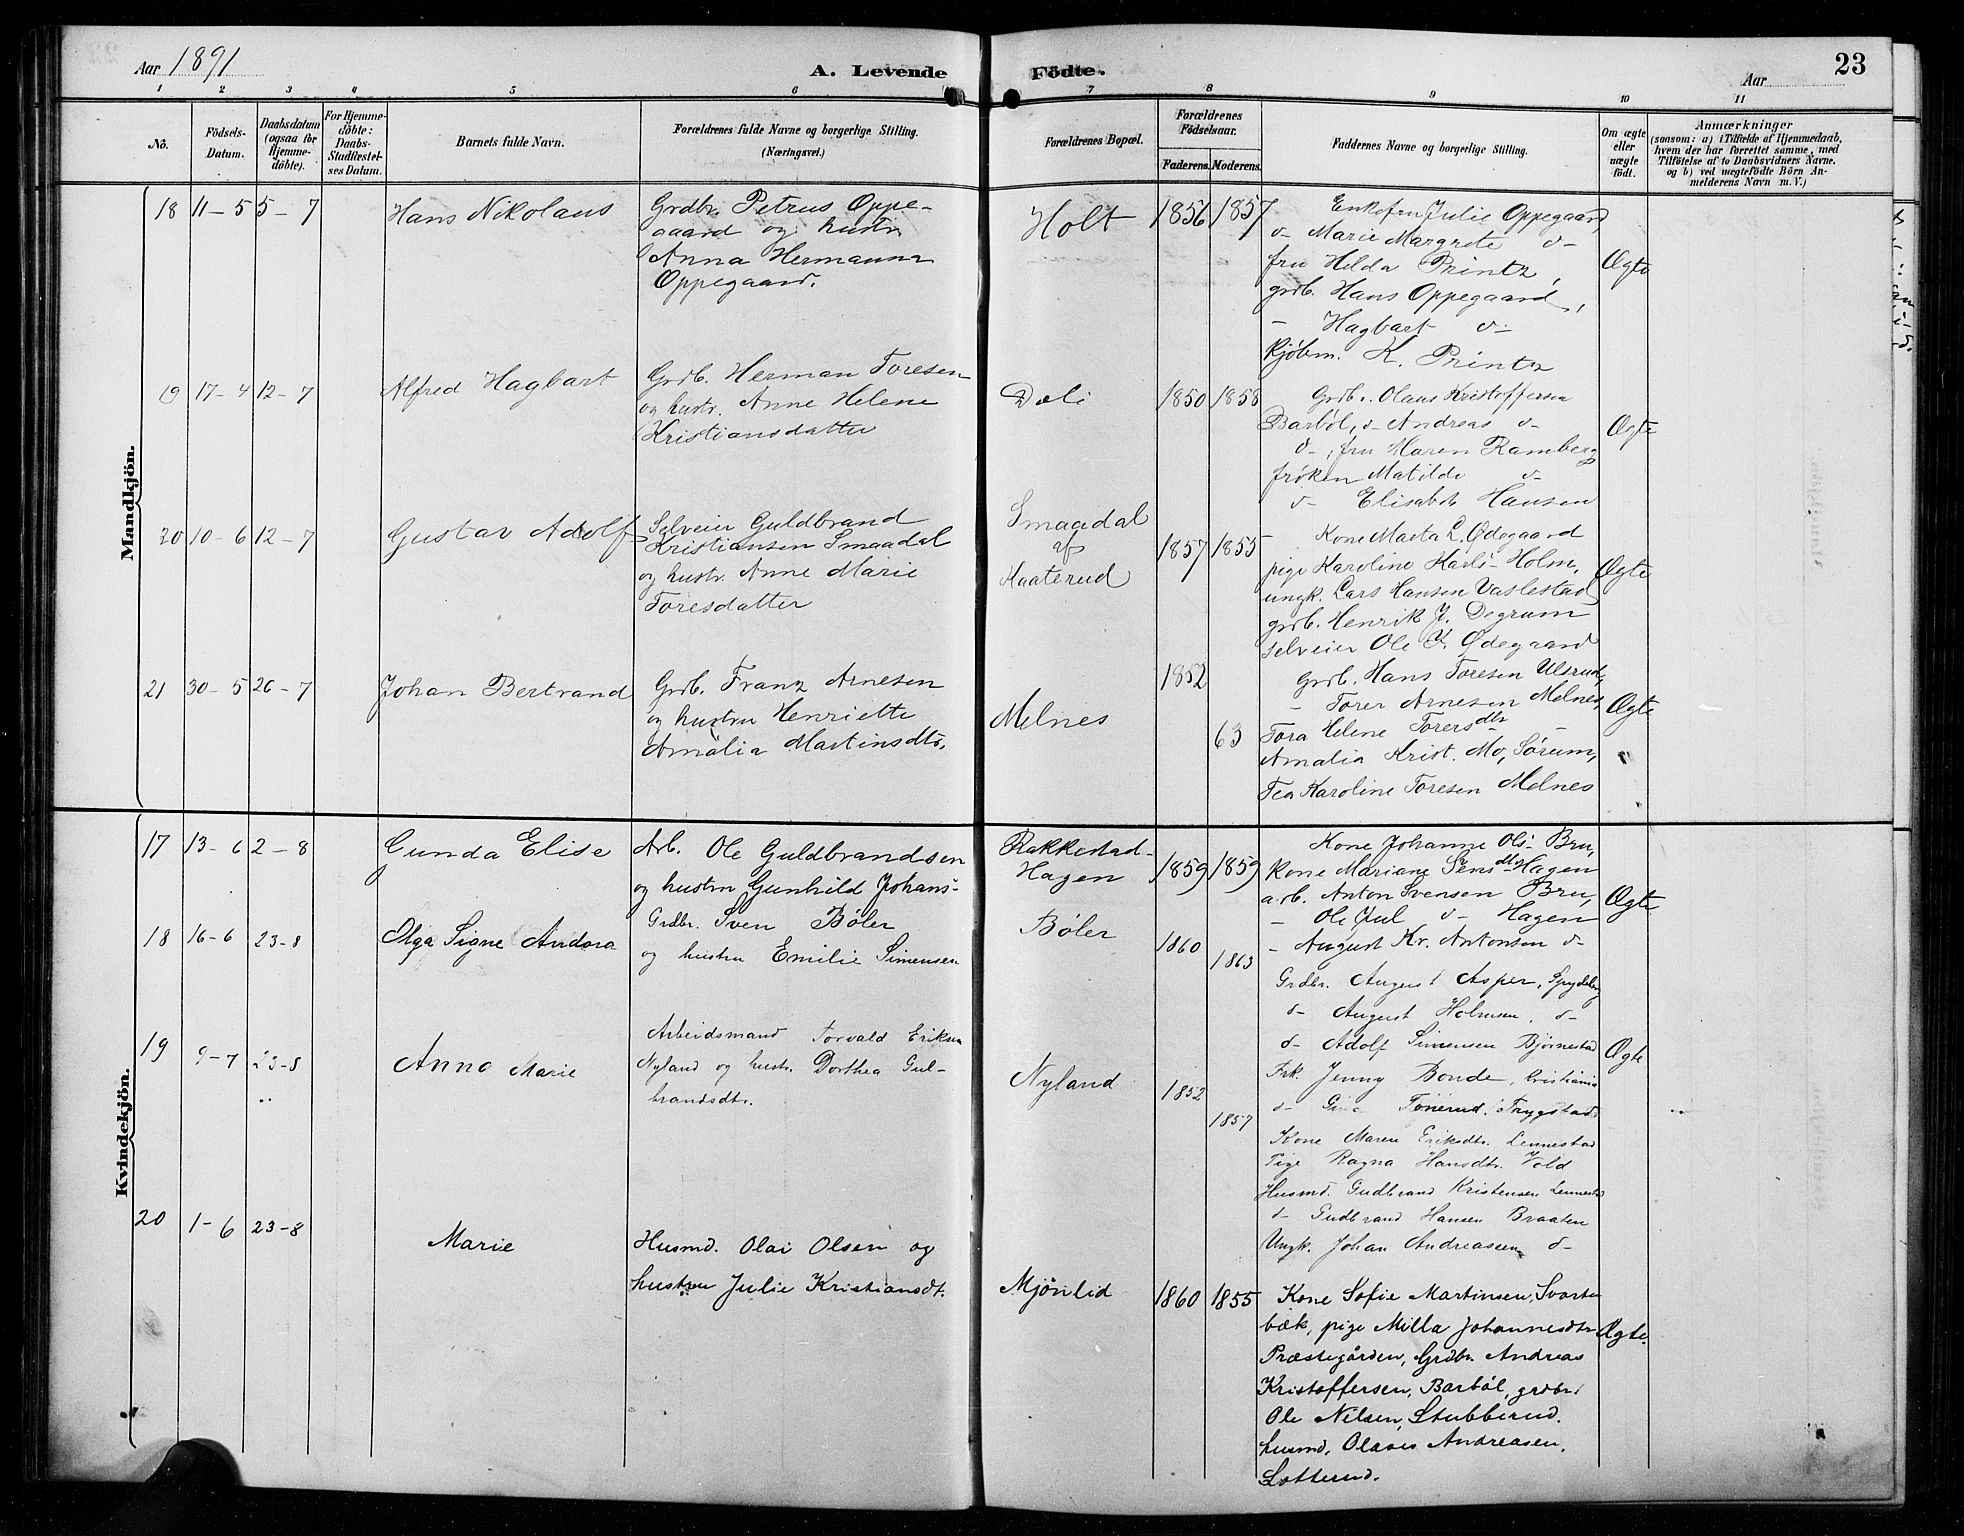 Aar 1891
A. Levende Födte.
Aar
23
1 2 3 4 5 6 7 8 9 10 11
No.
Födsels-Datum.
Daabsdatum (ogsaa for Hjemmedöbte).
For Hjemmedöbte: Daabs-Stadfæstelses Datum.
Barnets fulde Navn.
Forældrenes fulde Navne og borgerlige Stilling. (Næringsvei.)
Forældrenes Bopæl.
Forældrenes Födselsaar.
Faderens. Moderens.
Faddernes Navne og borgerlige Stilling.
Om ægte eller uægte födt.
Anmærkninger
(saasom: a) i Tilfælde af Hjemmedaab, hvem der har forrettet samme, med Tilföielse af to Daabsvidners Navne, og b) ved uægtefödte Börn Anmelderens Navn m. V.)
Mandkjön.
18 11-5 5-7
Hans Nikolaus
Grdbr. Petrus Oppe-
gaard og hustr.
Anna Hermanna
Oppegaard.
Holt
1856 1857
Enkefru Julie Oppegaard,
d- Marie Margrete d-
fru Hilda Printz,
grdb. Hans Oppegaard,
- Hagbart d-
Kjøbm. K. Printz
Ægte
19 17-4 12-7
Alfred Hagbart
Grdb. Herman Toresen
og hustr. Anne Helene
Kristiansdatter
Dæli
1850 1858
Grdb. Olaus Kristoffersen
Barbøl, d- Andreas d-
d-, fru Maren Ramberg
frøken Matilde d-
d- Elisabet Hansen
Ægte
20 10-6 12-7
Gustav Adolf
Selveier Guldbrand
Kristiansen Smaadal
og hustr. Anne Marie
Toresdatter
Smaadal
af
Kaaterud
1857 1855
Kone Maeta L. Ødegaard
pige Karoline Karls- Holm,
ungk. Lars Hansen Vaslestad
grdb. Henrik J. Degrum
selveier Ole K. Ødegaard
Ægte
21 30-5 26-7
Johan Bertrand
Grdb. Franz Arnesen
og hustru Henriette
Amalia Martinsdtr.
Melnes
1852
63
Grdb. Hans Toresen Ulsrud,
- Torer Arnesen Melnes,
Tora Helene Torersdtr -
Amalia Krist. Mo, Sørum,
Tea Karoline Toresen Melnes
Ægte
Kvindekjön.
17 13-6 2-8
Gunda Elise
Arb. Ole Guldbrandsen
og hustru Gunhild Johans-
Rakkestad-
Hagen
1859 1859
Kone Johanne Ols- Bru,
kone Mariane dtr Hagen
arb. Anton Svensen Bru,
- Ole Jul d- Hagen
- August Kr. Antonsen d-
Ægte
18 16-6 23-8
Olga Signe Andora
Grdbr. Sven Bøler
og hustru Emilie Simensen
Bøler
1860
1863
Grdbr. August Asper, Spydeberg
d- August Holmsen, d-
d- Adolf Simensen Bjørnestad
Frk. Jenny Bonde, Kristiania
d- Gina Tønerud, Trygstad.
Ægte
19 9-7 23-8
Anna Marie
Arbeidsmand Torvald Eriksen
Nyland og hustr. Dorthea Gul-
brandsdtr.
Nyland
1852
1857
Kone Maren Eriksdtr. Lennestad
Pige Ragna Hansdtr. Vold
Husmd. Gudbrand Kristensen Lennestad
d- Gudbrand Hansen Braaten
Ungk. Johan Andreassen d-
20 1-6 23-8
Marie
Husmd. Olai Olsen og
hustru Julie Kristiansdt.
Mjønlid
1860 1855
Kone Sofie Martinsen, Svarte
bæk, pige Milla Johannesdtr
Præstegården, Grdbr. Andreas
Kristoffersen, Barbøl, grdbr.
Ole Nilsen, Stubberud.
husmd. Olaves Andreasen,
Lotterud.
Ægte.